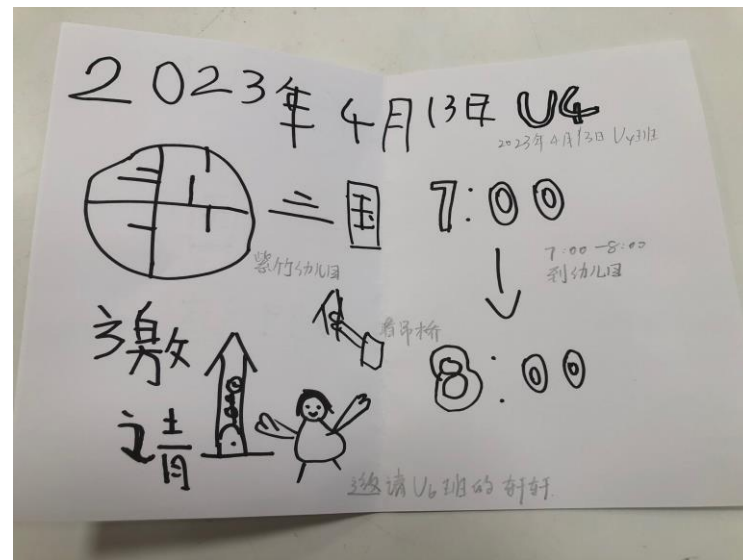 2023年4月13日 U4
2023年4月13日 U4班
二国
紫竹幼儿园
7:00
7:00-8:00
到幼儿园
看吊桥
8:00
邀
请
邀请U6班的轩轩